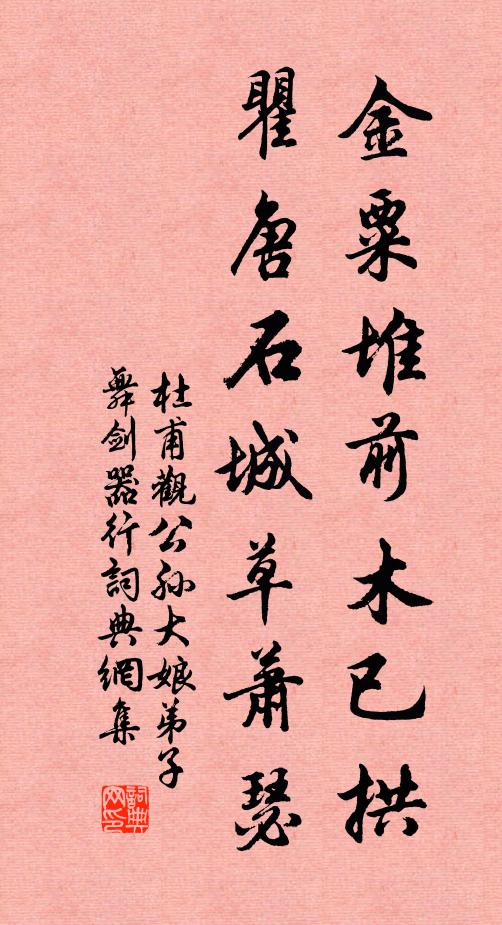 金粟堆前木已拱
瞿唐石城草萧瑟
杜甫觀公孙大娘弟子
舞剑器行詞典網集
詞典网印